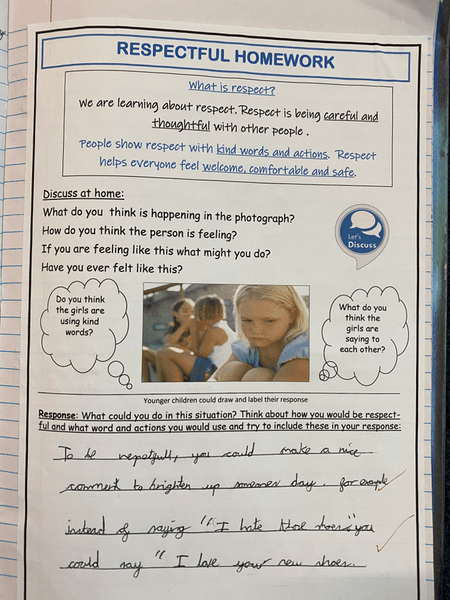 RESPECTFUL HOMEWORK
What is respect?
We are learning about respect. Respect is being careful and
thoughtful with other people .
People show respect with kind words and actions. Respect
helps everyone feel welcome, comfortable and safe.
Discuss at home:
What do you think is happening in the photograph?
How do you think the person is feeling?
If you are feeling like this what might you do?
Have you ever felt like this?
Let's
Discuss
Do you think
the girls are
using kind
words?
What do you
think the
girls are
saying to
each other?
Younger children could draw and label their response
Response: What could you do in this situation? Think about how you would be respect-
ful and what word and actions you would use and try to include these in your response:
To be you could make a nice
comment to brighten up day. for
instead of saying "I hate those shoes" you
could say " I love your new shoes.